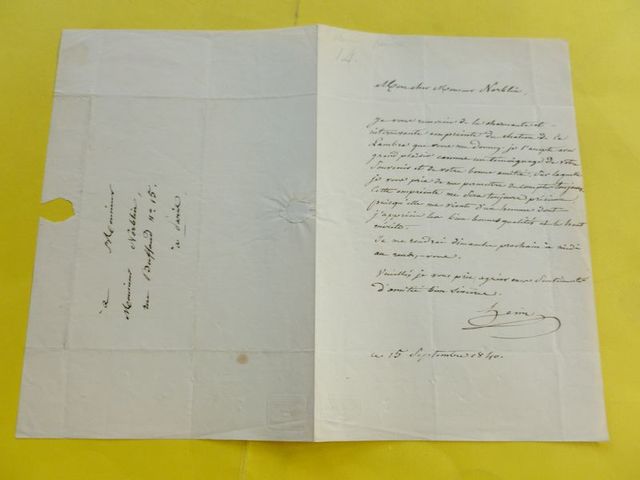 14.
Mon cher Monsieur Norblin,
Je vous remercie de la charmante et
intéressante empreinte du chaton de la
que vous me donnez, je l'accepte avec
grand plaisir comme un témoignage de votre
souvenir et de votre bonne amitié, sur laquelle
je vous prie de me permettre de compter toujours,
Cette empreinte me sera toujours précieuse
puisqu'elle me vient d'un homme dont
j'apprécie les bonnes qualités et le haut
mérite.
Je me rendrai dimanche prochain à midi
au rendez-vous.
Veuillez je vous prie agréer mes sentiments
d'amitié bien sincère.
le 15 Septembre 1840.
à Monsieur
Monsieur Norblin
rue n° 15.
à Paris